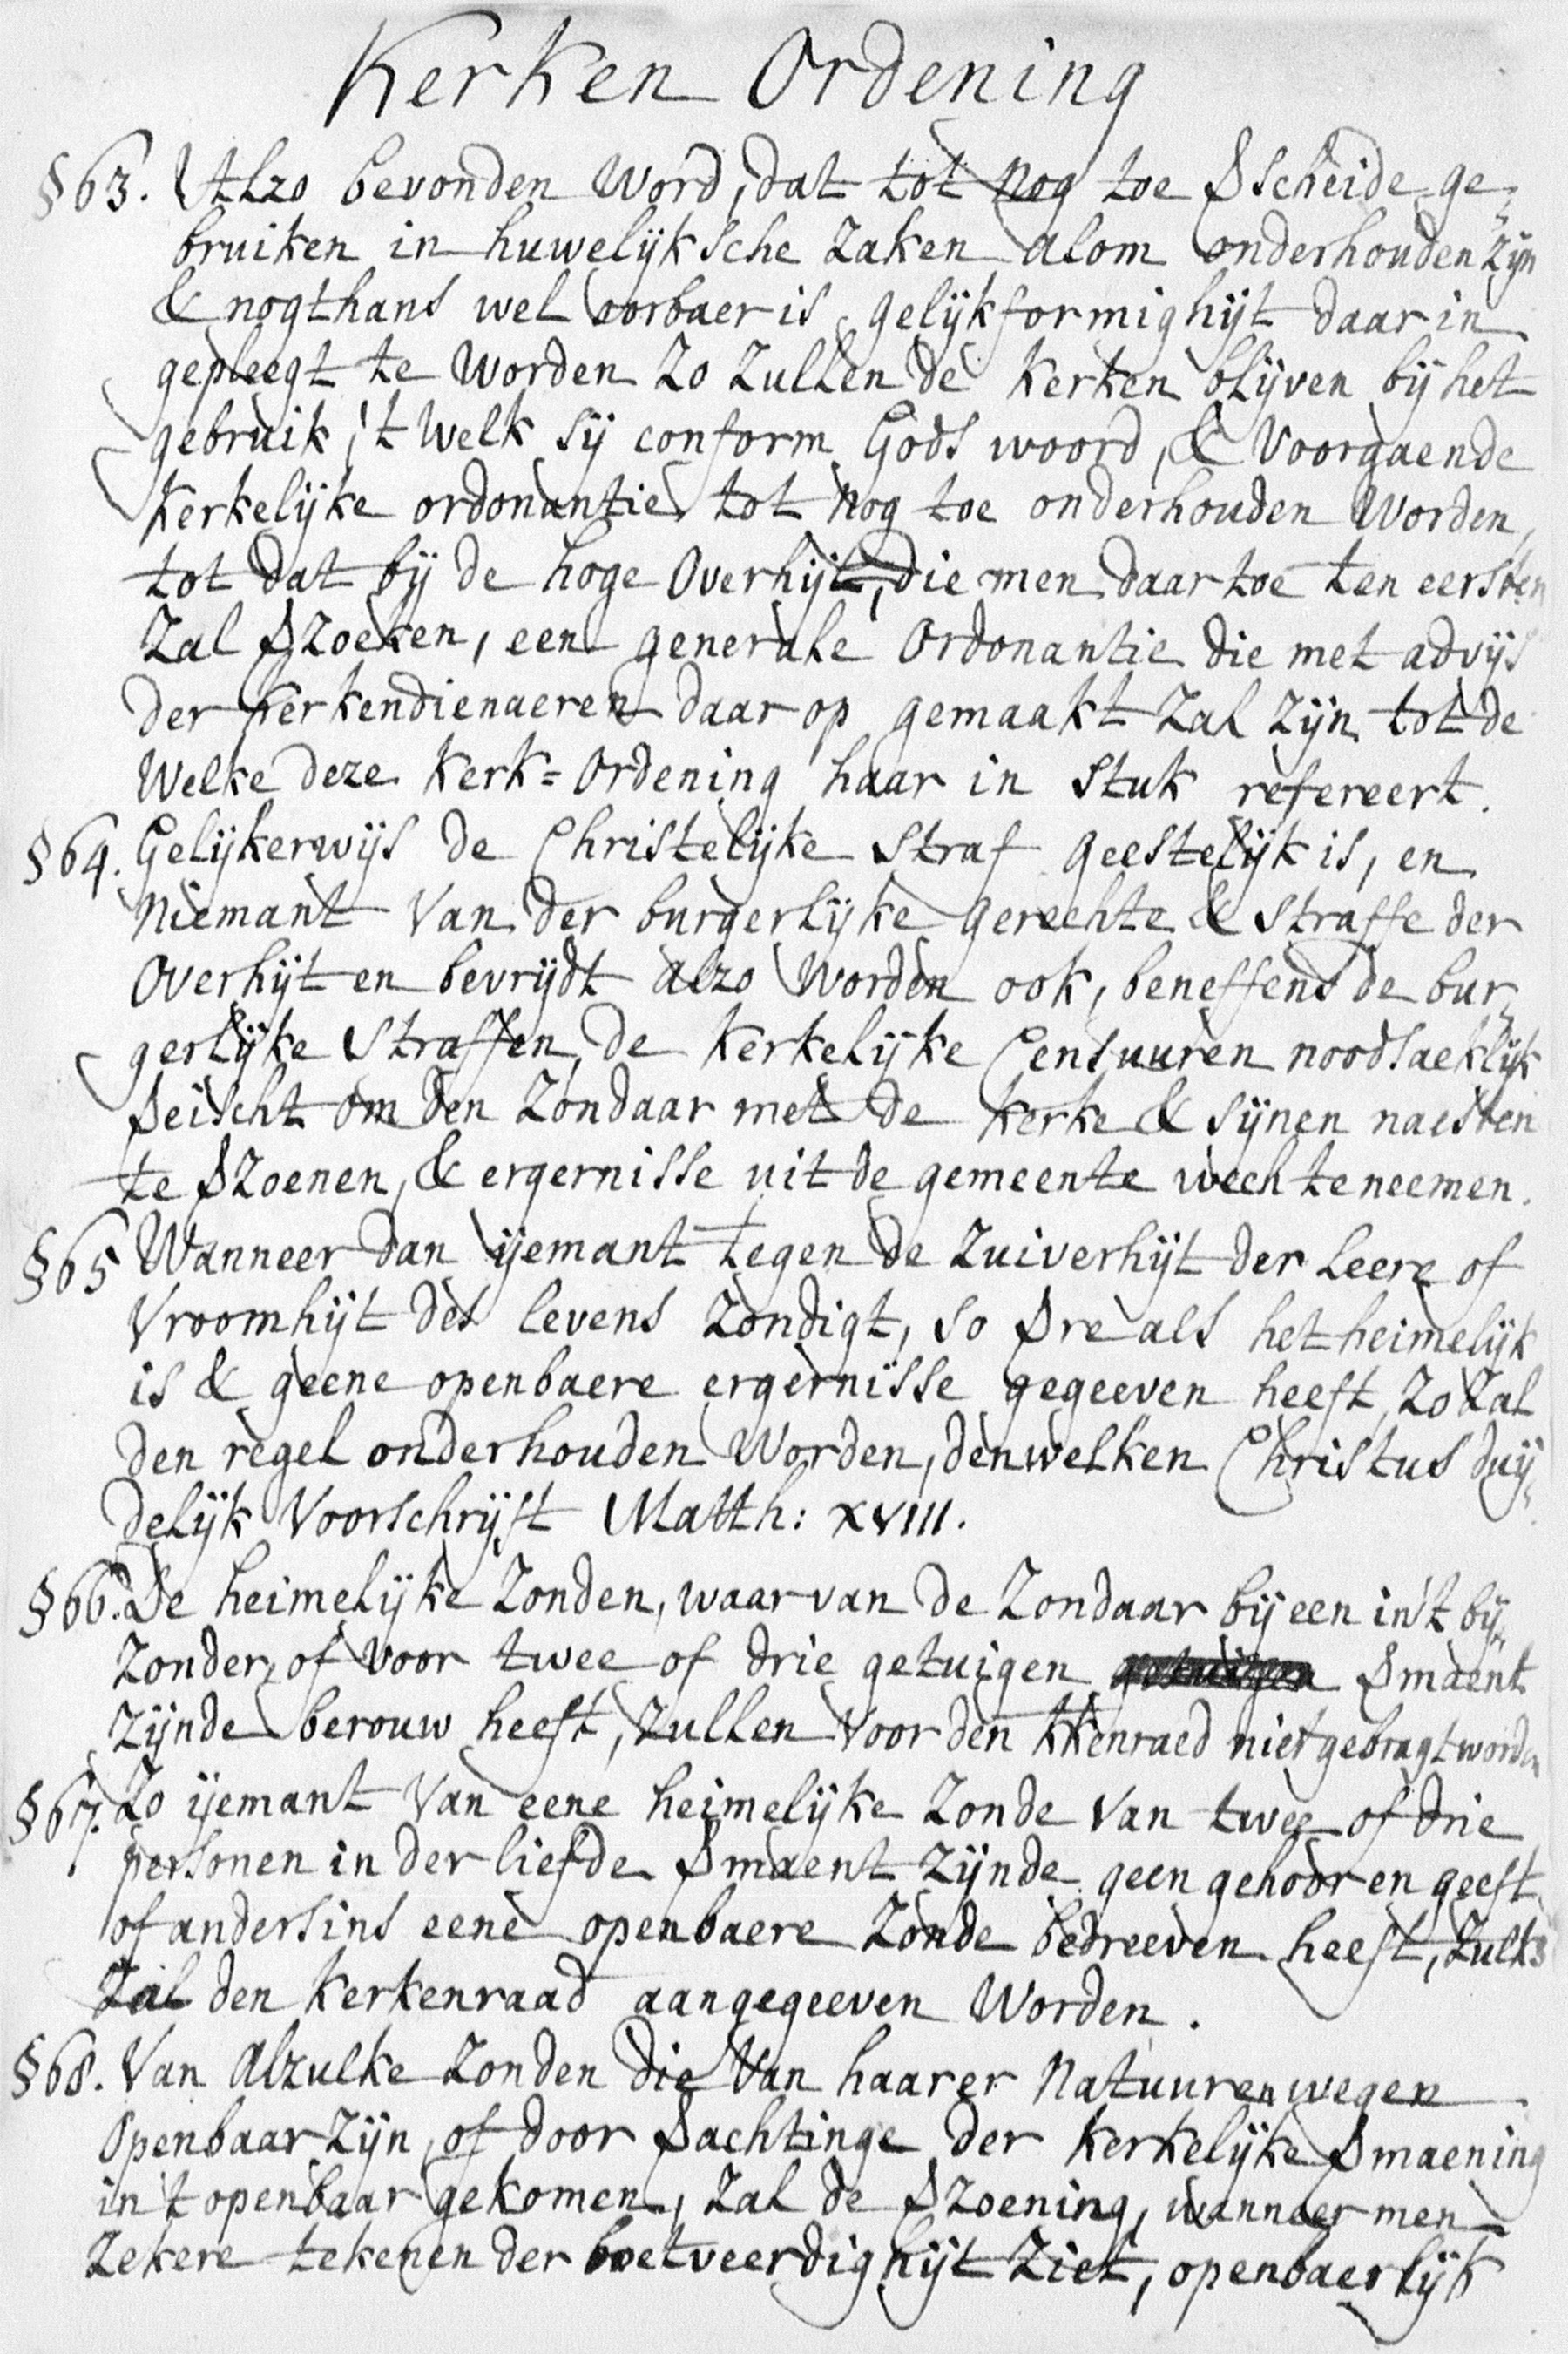 Kerken Ordening
§63. Alzo bevonden word, dat tot nog toe Vscheide ge-
bruiken in huwelijksche zaken alom onderhouden zijn
& nogthans wel oorbaer is gelijkformighijt daar in
gepleegt te worden zo zullen de Kerken blijven bij het
gebruik, 't welk sij conform Gods woord, & voorgaende
Kerkelijke ordonantie tot nog toe onderhouden worden,
tot dat bij de hoge Overhijt, die men daar toe ten eersten
zal Vzoeken, een generale Ordonantie die met advijs
der Kerkendienaeren daar op gemaakt zal zijn tot de
welke deze Kerk=Ordening haar in stuk refereert.
§64. Gelijkerwijs de Christelijke straf geestelijk is, en
niemant van der burgerlijke gerechte & straffe der
Overhijt en bevrijdt alzo worden ook, beneffens de bur-
gerlijke straffen, de Kerkelijke Censuuren noodsaeklijk
Veischt om den zondaar met de kerke & sijnen naesten
te Vzoenen, & ergernisse uit de gemeente wech te neemen.
§65 Wanneer dan ijemant tegen de zuiverhijt der leere of
vroomhijt des levens zondigt, so Vre als het heimelijk
is & geene openbaere ergernisse gegeeven heeft, zo zal
den regel onderhouden worden, denwelken Christus duij-
delijk voorschrijft Matth: XVIII.
§66. De heimelijke zonden, waarvan de zondaar bij een in't bij-
zonder, of voor twee of drie getuigen Vmaent
zijnde berouw heeft, zullen voor den kkenraed niet gebragt worden
§67. Zo ijemant van eene heimelijke zonde van twee of drie
personen in der liefde Vmaent zijnde geen gehoor en geeft
of andersins eene openbaere zonde bedreeven heeft, zulks
zal den Kerkenraad aangegeeven worden.
§68. Van alzulke zonden die van haarer natuuren wegen
openbaar zijn, of door Vachtinge der Kerkelijke Vmaening
in't openbaar gekomen, zal de Vzoening, wanneer men
zekere tekenen der boetveerdighijt ziet, openbaerlijk